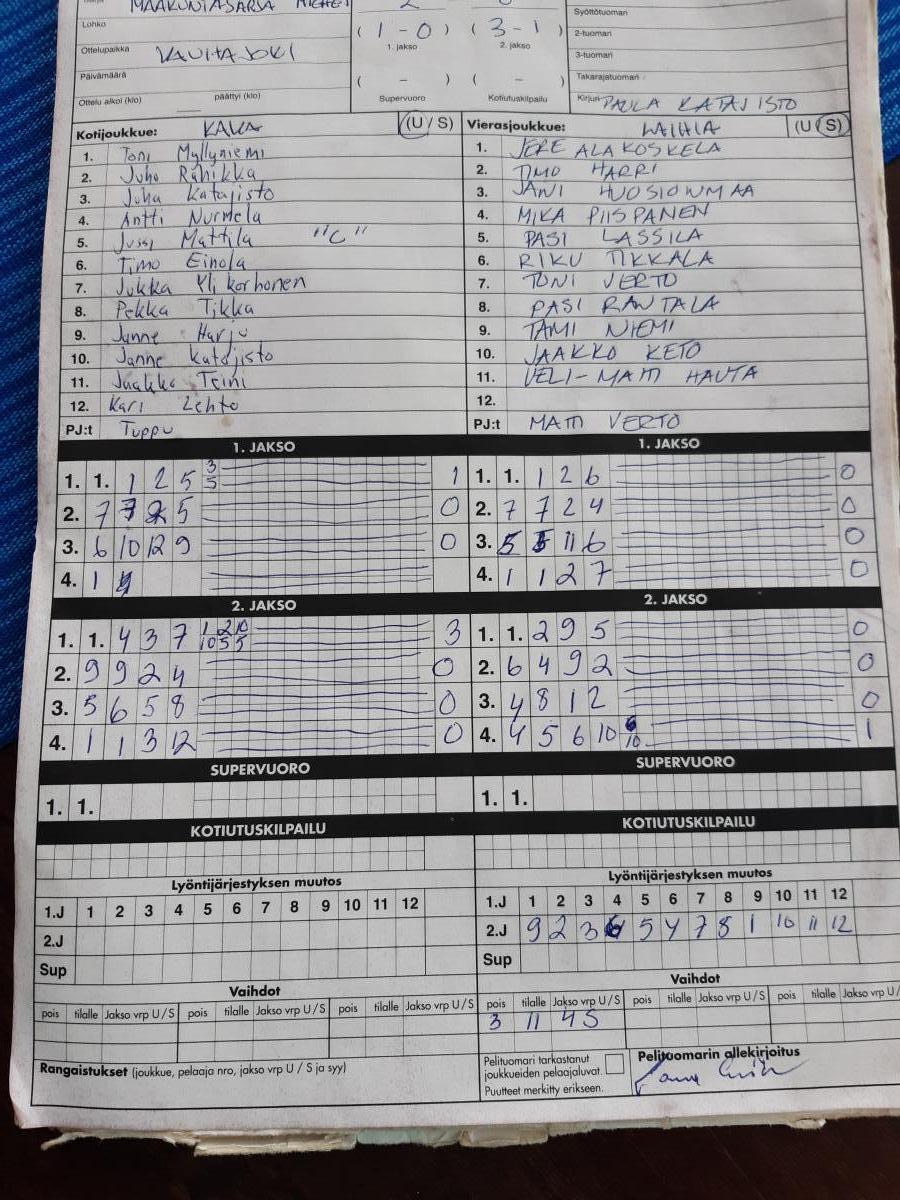 MAAKUNTASARJA MIEHET
Lohko
( 1 - 0 ) ( 3 - 1 )
1. jakso 2. jakso
Syöttötuomari
2-tuomari
3-tuomari
Takarajatuomari
Ottelupaikka KAUHAJOKI
Päivämäärä
( - ) ( - )
Ottelu alkoi (klo) päättyi (klo)
Supervuoro Kotiutuskilpailu
Kirjuri PAULA KATAJISTO
Kotijoukkue: KAKA (U / S) Vierasjoukkue: LAIHIA (U / S)
1. Toni Myllyniemi 1. JERE ALAKOSKELA
2. Juho Rahikka 2. TIMO HARRI
3. Juha Katajisto 3. JANI HUOSIONMAA
4. Antti Nurmela 4. MIKA PIISPANEN
5. Jussi Mattila "C" 5. PASI LASSILA
6. Timo Einola 6. RIKU TIKKALA
7. Jukka Ylikorhonen 7. TONI VERTO
8. Pekka Tikka 8. PASI RANTALA
9. Janne Harju 9. TAMI NIEMI
10. Janne Katajisto 10. JAAKKO KETO
11. Jaakko Teini 11. VELI-MATTI HAUTA
12. Kari Lehto 12.
PJ:t Tuppu PJ:t MATTI VERTO
1. JAKSO 1. JAKSO
1. 1. 1 2 5 3 5 1 1. 1. 1 2 6 0
2. 7 7 2 5 0 2. 7 7 2 4 0
3. 6 10 12 9 0 3. 5 5 11 6 0
4. 1 4 4. 1 1 2 7 0
2. JAKSO 2. JAKSO
1. 1. 4 3 7 1 2 10 10 5 5 3 1. 1. 2 9 5 0
2. 9 9 2 4 0 2. 6 4 9 2 0
3. 5 6 5 8 0 3. 4 8 1 2 0
4. 1 1 3 12 0 4. 4 5 6 10 6 10 1
SUPERVUORO SUPERVUORO
1. 1. 1. 1.
KOTIUTUSKILPAILU KOTIUTUSKILPAILU
Lyöntijärjestyksen muutos Lyöntijärjestyksen muutos
1.J 1 2 3 4 5 6 7 8 9 10 11 12 1.J 1 2 3 4 5 6 7 8 9 10 11 12
2.J 2.J 9 2 3 6 5 4 7 8 1 10 11 12
Sup Sup
Vaihdot Vaihdot
pois tilalle Jakso vrp U/S pois tilalle Jakso vrp U/S pois tilalle Jakso vrp U/S pois tilalle Jakso vrp U/S
3 11 4S
Rangaistukset (joukkue, pelaaja nro, jakso vrp U / S ja syy)
Pelituomari tarkastanut
joukkueiden pelaajaluvat.
Puutteet merkitty erikseen.
Pelituomarin allekirjoitus